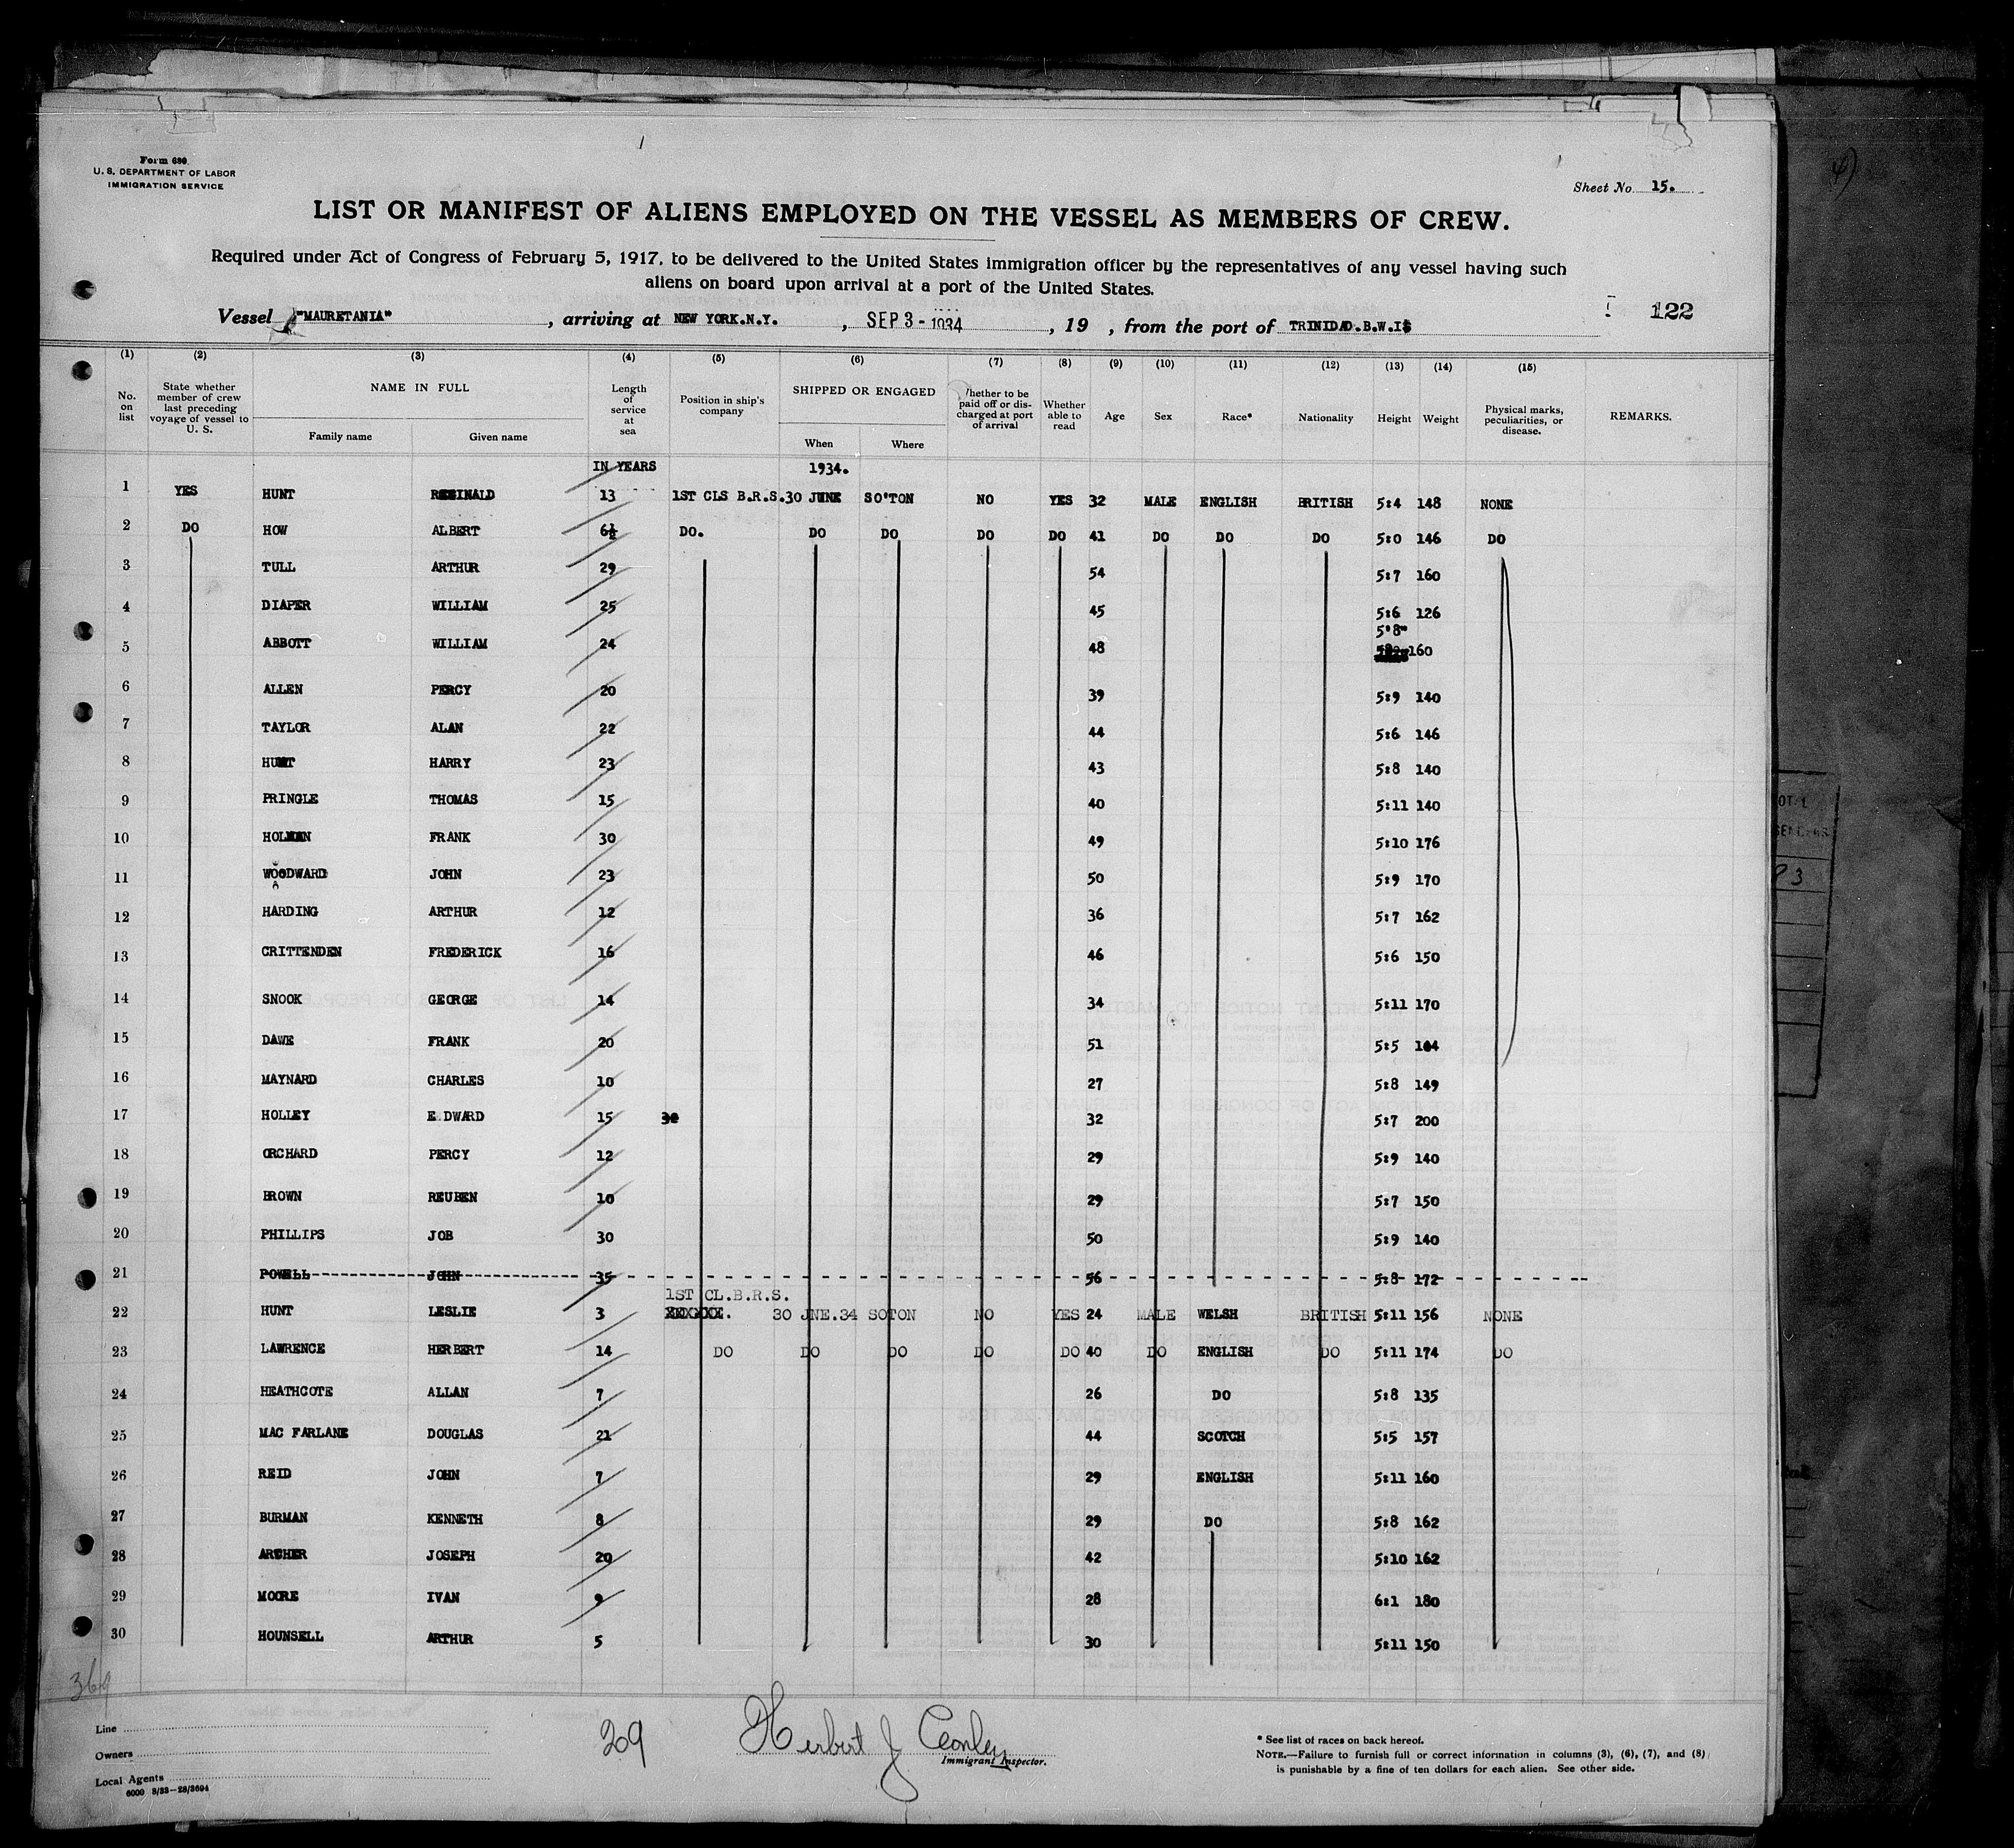 Form 680
U. S. DEPARTMENT OF LABOR
IMMIGRATION SERVICE
Sheet No 15.
LIST OR MANIFEST OF ALIENS EMPLOYED ON THE VESSEL AS MEMBERS OF CREW.
Required under Act of Congress of February 5, 1917, to be delivered to the United States immigration officer by the representatives of any vessel having such
aliens on board upon arrival at a port of the United States.
Vessel "MAURETANIA", arriving at NEW YORK.N.Y., SEP 3 - 1934, 19 , from the port of TRINIDAD.B.W.IS 122
(1) (2) (3) (4) (5) (6) (7) (8) (9) (10) (11) (12) (13) (14) (15)
No. on list
State whether member of crew last preceding voyage of vessel to U. S.
NAME IN FULL
Family name Given name
Length of service at sea
Position in ship's company
SHIPPED OR ENGAGED
When Where
Whether to be paid off or discharged at port of arrival
Whether able to read
Age Sex Race* Nationality Height Weight
Physical marks, peculiarities, or disease.
REMARKS.
IN YEARS 1934.
1 YES HUNT REGINALD 13 1ST CLS B.R.S. 30 JUNE SO'TON NO YES 32 MALE ENGLISH BRITISH 5:4 148 NONE
2 DO HOW ALBERT 6½ DO. DO DO DO DO 41 DO DO DO 5:0 146 DO
3 TULL ARTHUR 29 54 5:7 160
4 DIAPER WILLIAM 25 45 5:6 126
5'8"
5 ABBOTT WILLIAM 24 48 160
6 ALLEN PERCY 20 39 5:9 140
7 TAYLOR ALAN 22 44 5:6 146
8 HUNT HARRY 23 43 5:8 140
9 PRINGLE THOMAS 15 40 5:11 140
10 HOLMAN FRANK 30 49 5:10 176
11 WOODWARD JOHN 23 50 5:9 170
12 HARDING ARTHUR 12 36 5:7 162
13 CRITTENDEN FREDERICK 16 46 5:6 150
14 SNOOK GEORGE 14 34 5:11 170
15 DAWE FRANK 20 51 5:5
16 MAYNARD CHARLES 10 27 5:8 149
17 HOLLEY E DWARD 15 32 5:7 200
18 ORCHARD PERCY 12 29 5:9 140
19 BROWN REUBEN 10 29 5:7 150
20 PHILLIPS JOB 30 50 5:9 140
21 POWELL JOHN 35 56 5:8 172
1ST CL.B.R.S.
22 HUNT LESLIE 3 30 JNE.34 SOTON NO YES 24 MALE WELSH BRITISH 5:11 156 NONE
23 LAWRENCE HERBERT 14 DO DO DO DO DO 40 DO ENGLISH DO 5:11 174 DO
24 HEATHCOTE ALLAN 7 26 DO 5:8 135
25 MAC FARLANE DOUGLAS 21 44 SCOTCH 5:5 157
26 REID JOHN 7 29 ENGLISH 5:11 160
27 BURMAN KENNETH 8 29 DO 5:8 162
28 ARCHER JOSEPH 20 42 5:10 162
29 MOORE IVAN 9 28 6:1 180
30 HOUNSELL ARTHUR 5 30 5:11 150
369
Line
Owners
Local Agents
6000 8/33—28/3694
29
Herbert J Conley
Immigrant Inspector.
* See list of races on back hereof.
NOTE.—Failure to furnish full or correct information in columns (3), (6), (7), and (8)
is punishable by a fine of ten dollars for each alien. See other side.